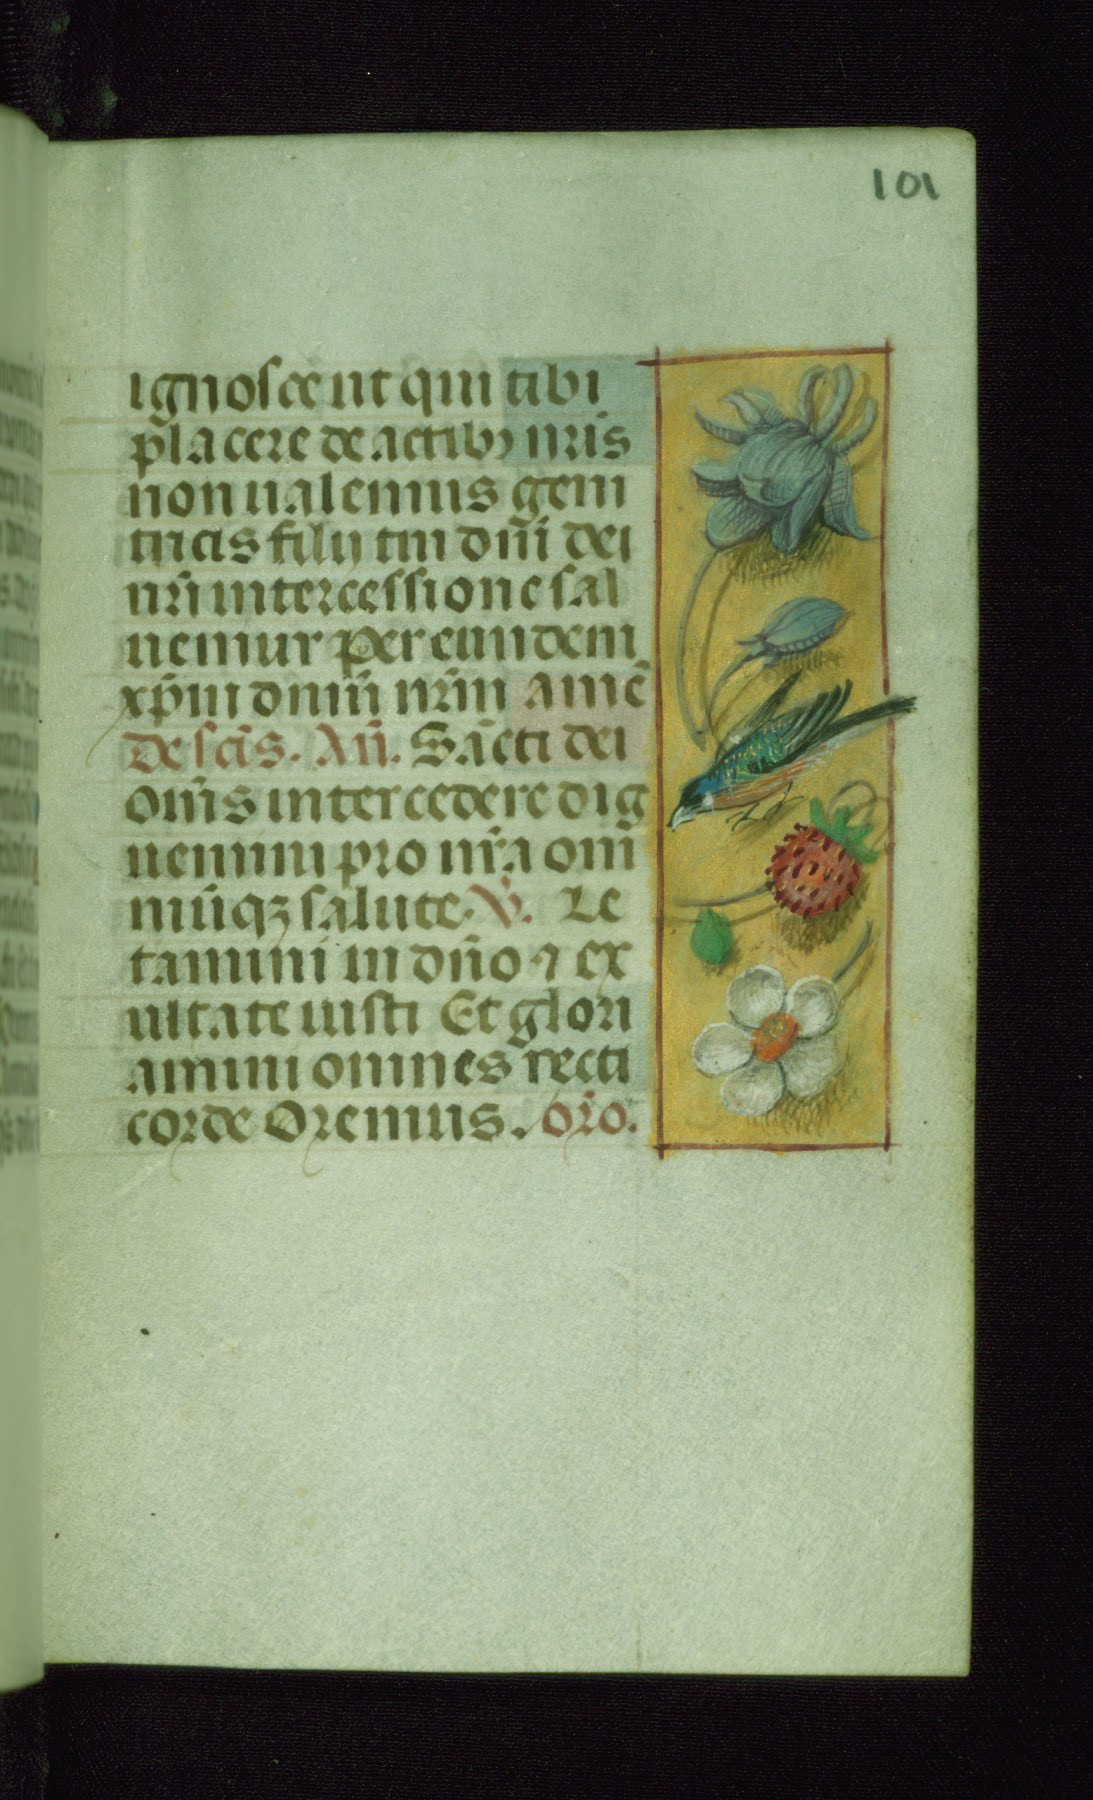 101
ignosce ut qui tibi
p̄lacere de actibꝫ nr̄is
non ualemus geni
tricis filij tui dn̄i dei
nr̄i intercessione sal
uemur Per eundem
xp̄m dnm̄ nrm̄ amē
De sc̄is. An̄. Sācti dei
om̄s intercedere dig
nemini pro nr̄a omi
niūqꝫ salute. V̇. Le
tamini in dn̄o ⁊ ex
ultate iusti Et glori
amini omnes recti
corde Oremus. or̄o.